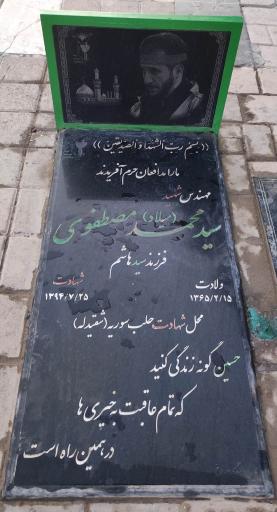 ((بسم رب الشهدا و الصدیقین))
ما را مدافعان حرم آفریدند
مهندس شهید
سید محمد (میلاد) مصطفوی
فرزند سید هاشم
ولادت
۱۳۶۵/۲/۱۵
شهادت
۱۳۹۴/۷/۲۵
محل شهادت حلب سوریه (شقیدله)
حسین گونه زندگی کنید
که تمام عاقبت به خیری ها
در همین راه است